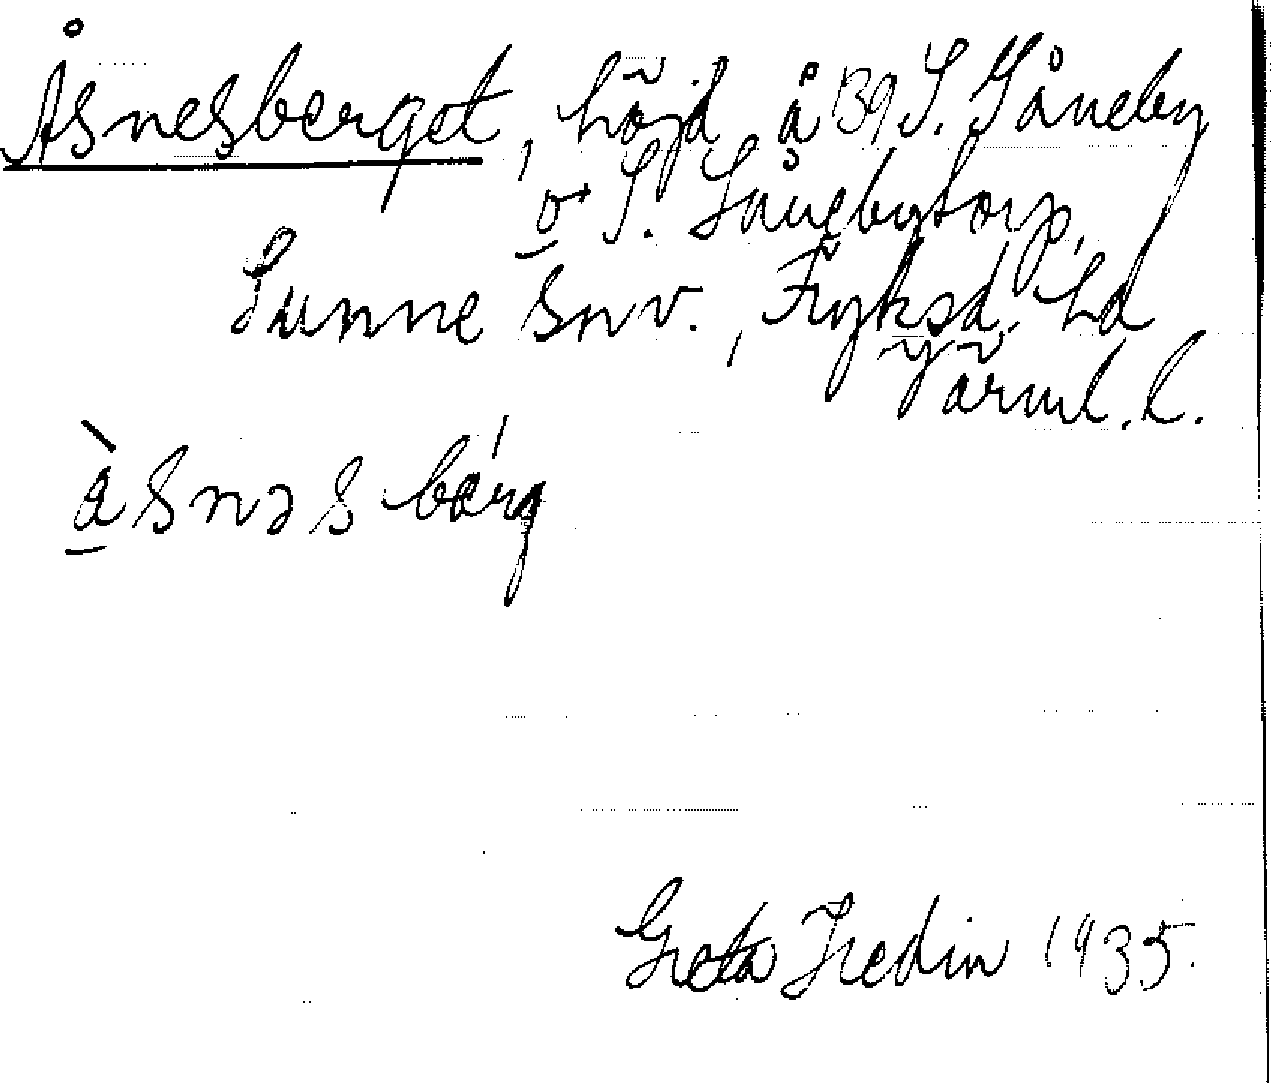 Åsnesberget, höjd å 139 S. Såneby
o S. Sånebytorp,
Sunne snv., Fryksd. hd
Värml. l.
åsnəsbærg
Greta Hedin 1935.